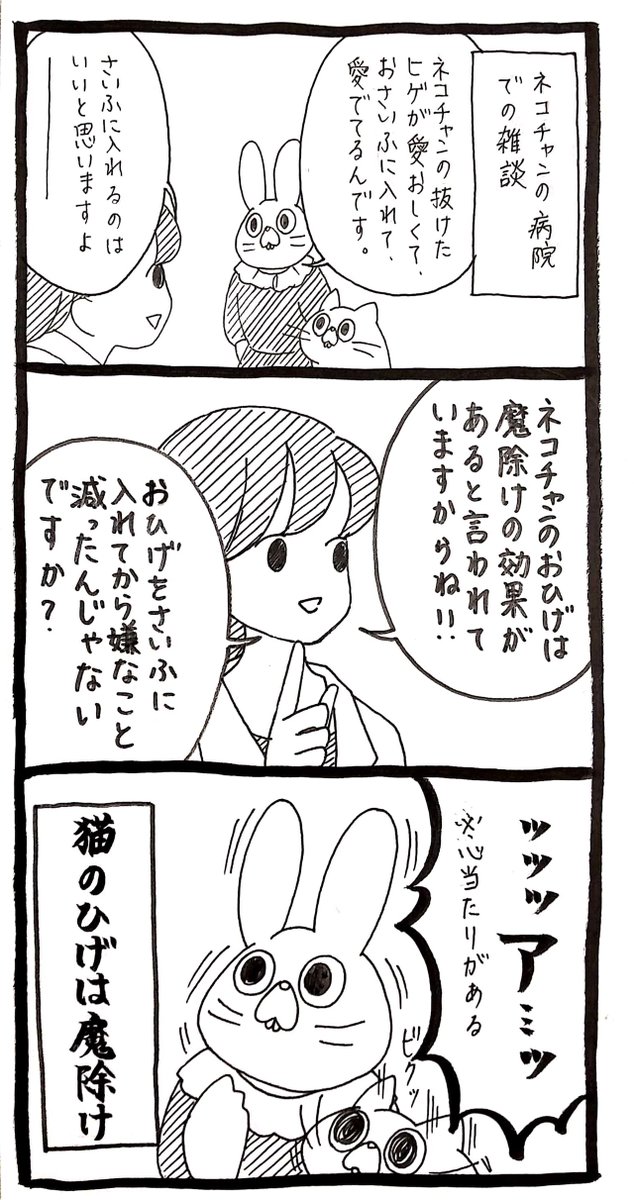 ネコチャンの病院
での雑談
ネコチャンの抜けた
ヒゲが愛おしくて、
おさいふに入れて、
愛でてるんです。
さいふに入れるのは
いいと思いますよ
ネコチャンのおひげは
魔除けの効果が
あると言われて
いますからね!!
おひげをさいふに
入れてから嫌なこと
減ったんじゃない
ですか?
ッッッアミッ
※心当たりがある
ビクッ
猫のひげは魔除け